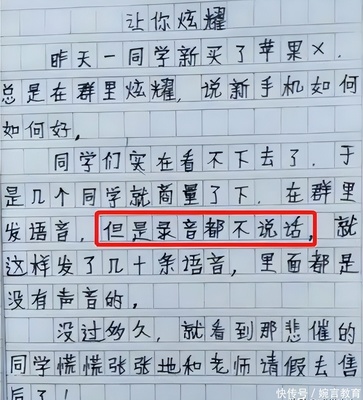 让你炫耀
昨天一同学新买了苹果X.
总是在群里炫耀,说新手机如何
如何好。
同学们实在看不下去了.于
是几个同学就商量了下.在群里
发语音,但是录音都不说话,就
这样发了几十条语音,里面都是
没有声音的,
没过多久,就看到那悲催的
同学慌慌张张地和老师请假去售
后了!
快传号/婉言教育